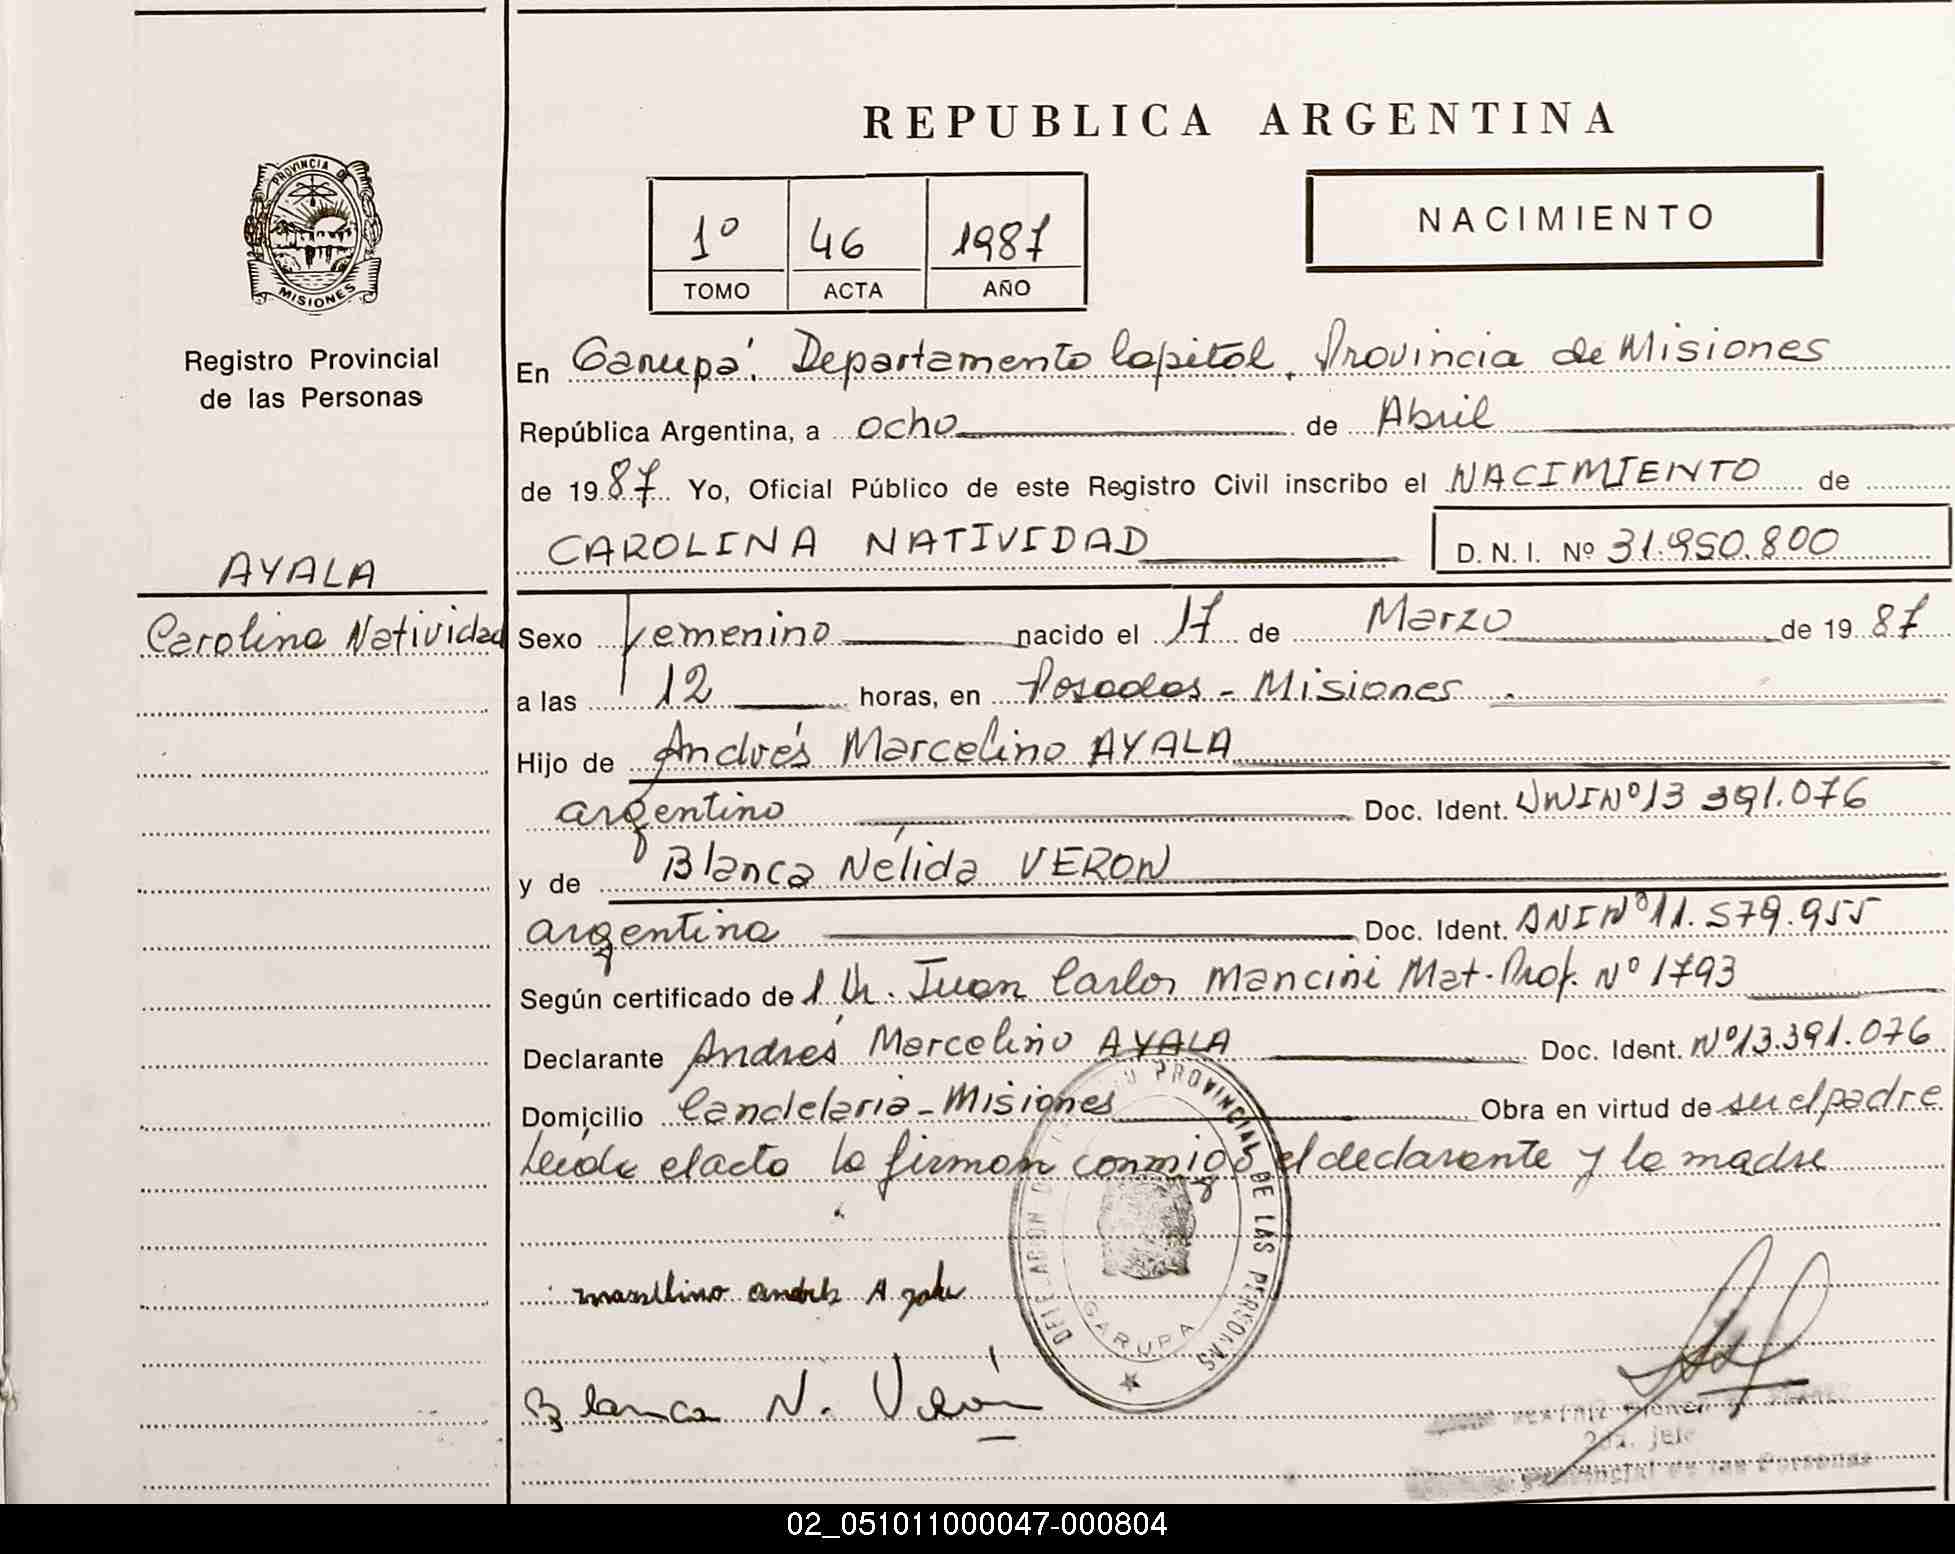 REPUBLICA ARGENTINA
PROVINCIA DE
MISIONES
Registro Provincial
de las Personas
1º 46 1987
TOMO ACTA AÑO
NACIMIENTO
En Garupá. Departamento Capital. Provincia de Misiones
República Argentina, a ocho de Abril
de 1987 Yo, Oficial Público de este Registro Civil inscribo el NACIMIENTO de
CAROLINA NATIVIDAD D. N. I. Nº 31.950.800
AYALA
Carolina Natividad
Sexo femenino nacido el 17 de Marzo de 1987
a las 12 horas, en Posadas - Misiones
Hijo de Andrés Marcelino AYALA
argentino Doc. Ident. DNI Nº 13 391.076
y de Blanca Nélida VERON
argentina Doc. Ident. DNI Nº 11.579.955
Según certificado de l Dr. Juan Carlos Mancini Mat. Prof. Nº 1793
Declarante Andrés Marcelino AYALA Doc. Ident. Nº 13.391.076
Domicilio Candelaria - Misiones Obra en virtud de su el padre
Leída el acta la firman conmigo el declarante y la madre
DELEGACION PROVINCIAL DE LAS PERSONAS
GARUPA
Blanca N. Verón
2da. Jefe
Provincial de las Personas
02_051011000047-000804